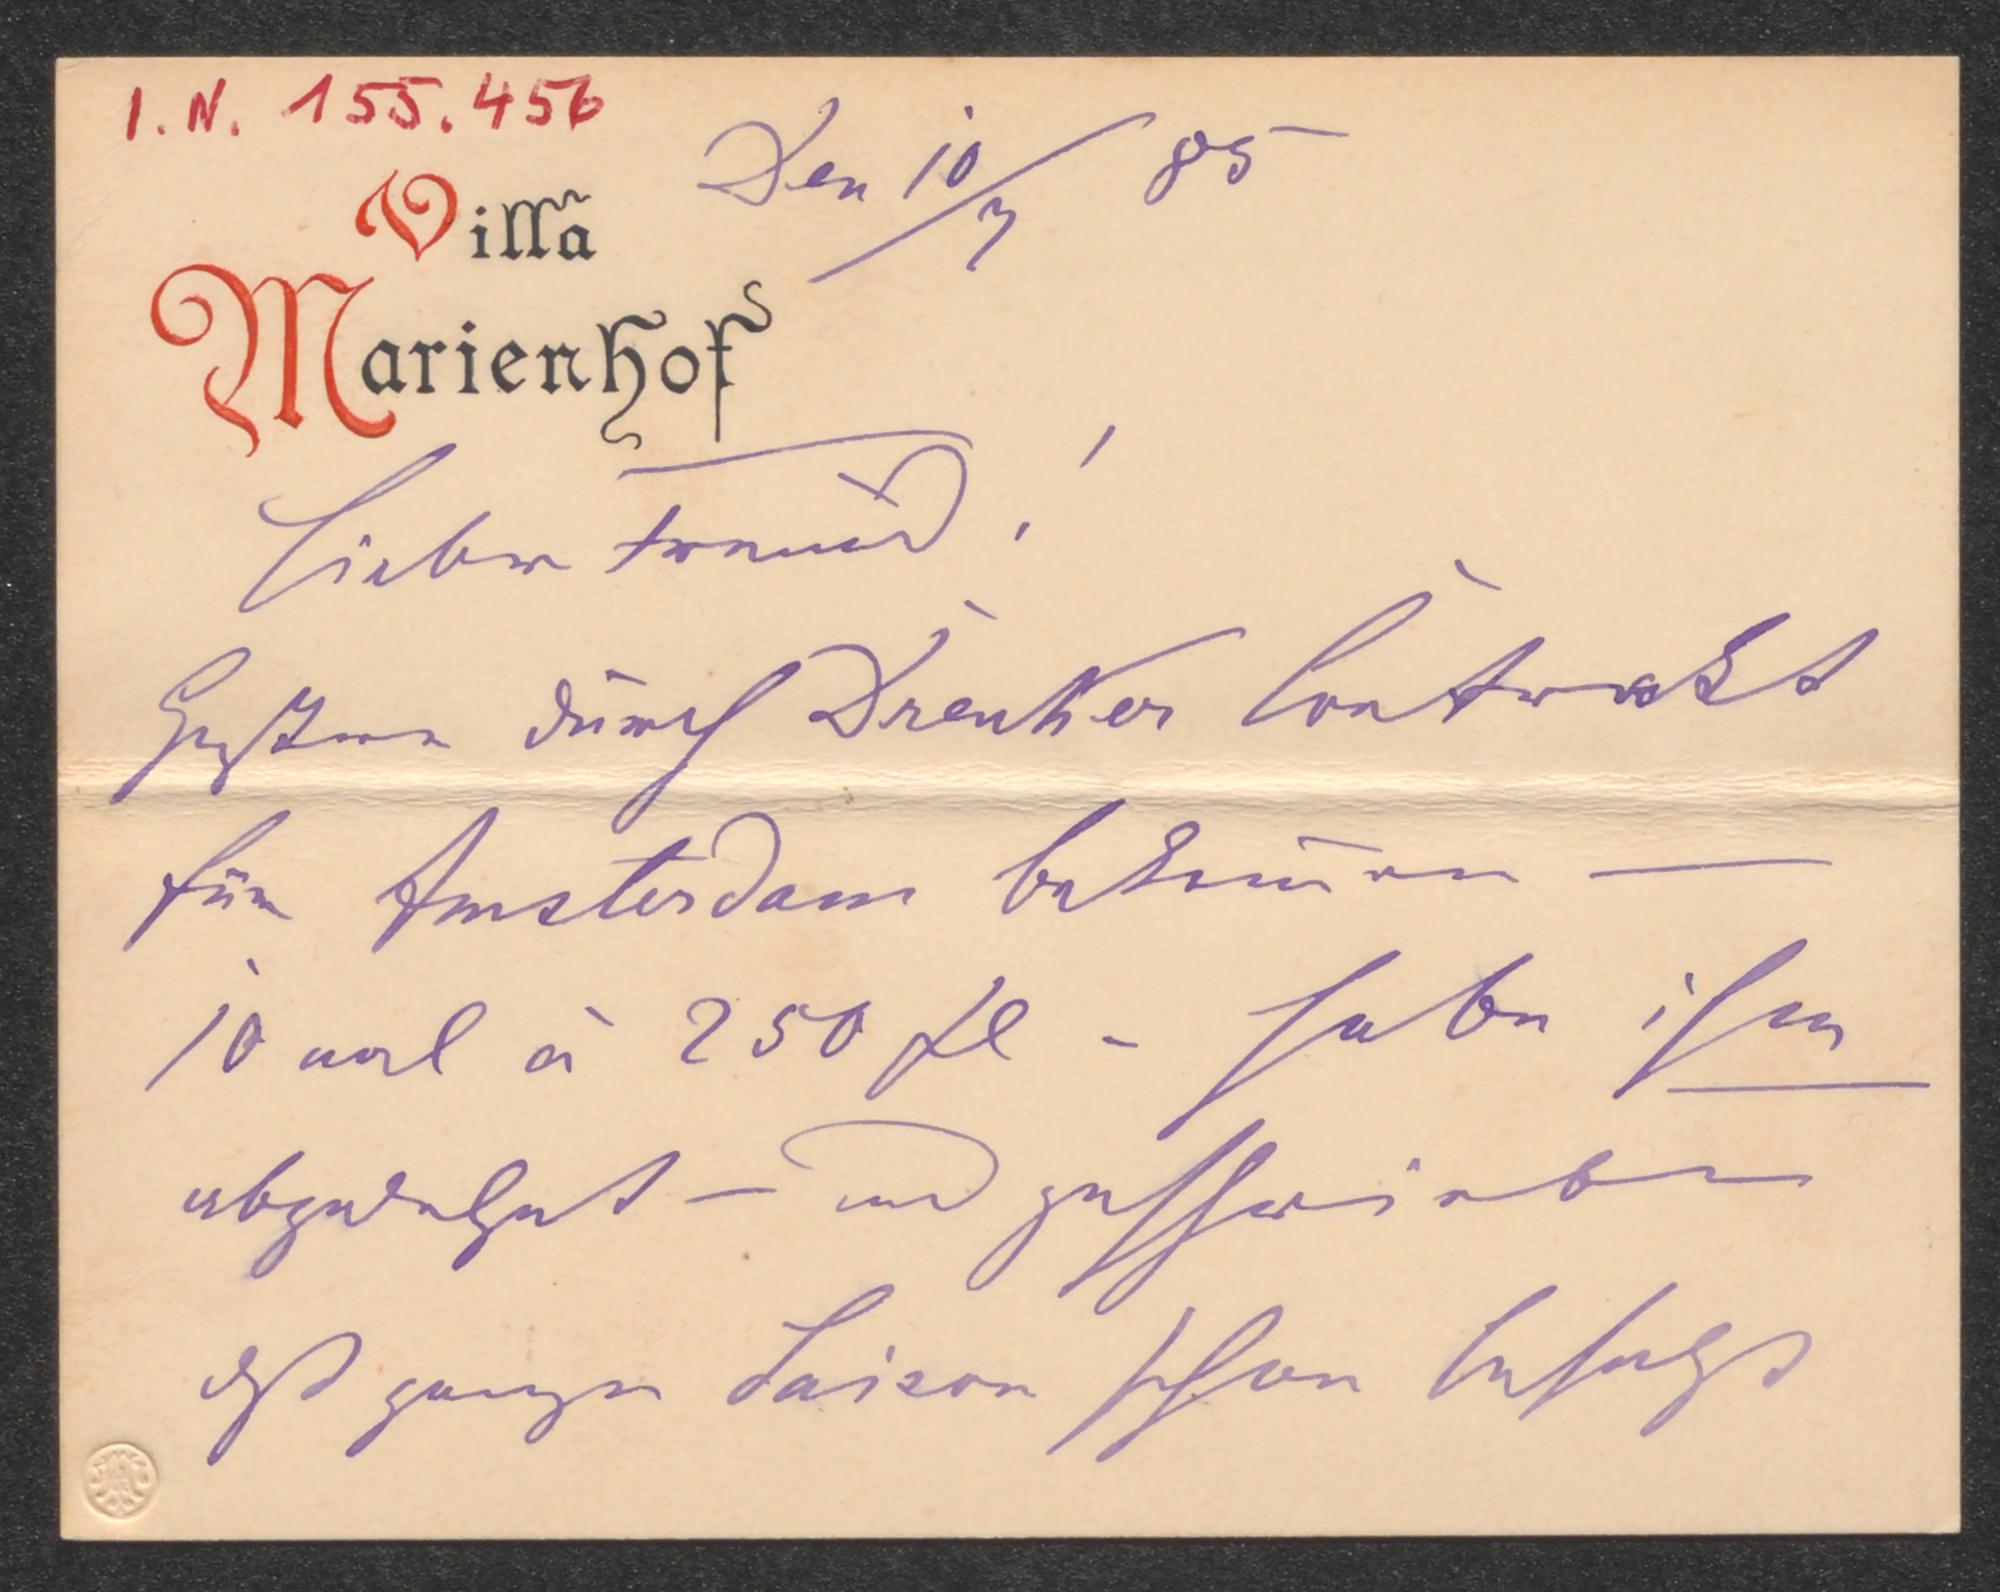 I. N. 155.456
Den 10/7 85
Villa
Marienhof
Lieber Freund!
Gestern durch Drenker Contrakt
für Amsterdam bekom̅en —
10 mal à 250 fl - habe ihm
abgelehnt — und geschrieben
daß ganze Saison schon besetzt